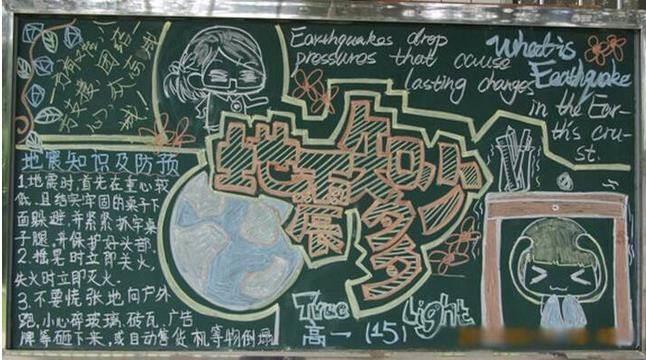 Earthquakes drop
pressures that cause
lasting changes
in the Ear-
th's cru-
st.
What is
Earthquake
地震知多少
地震知识及防预
1.地震时,首先在重心较
低、且结实牢固的桌子下
面躲避,并紧紧抓牢桌
子腿,并保护好头部.
2.摇晃时立即关火,
失火时立即灭火.
3.不要慌张地向户外
跑,小心碎玻璃、砖瓦、广告
牌等砸下来,或自动售货机等物倒塌
True Light
高一 (15)